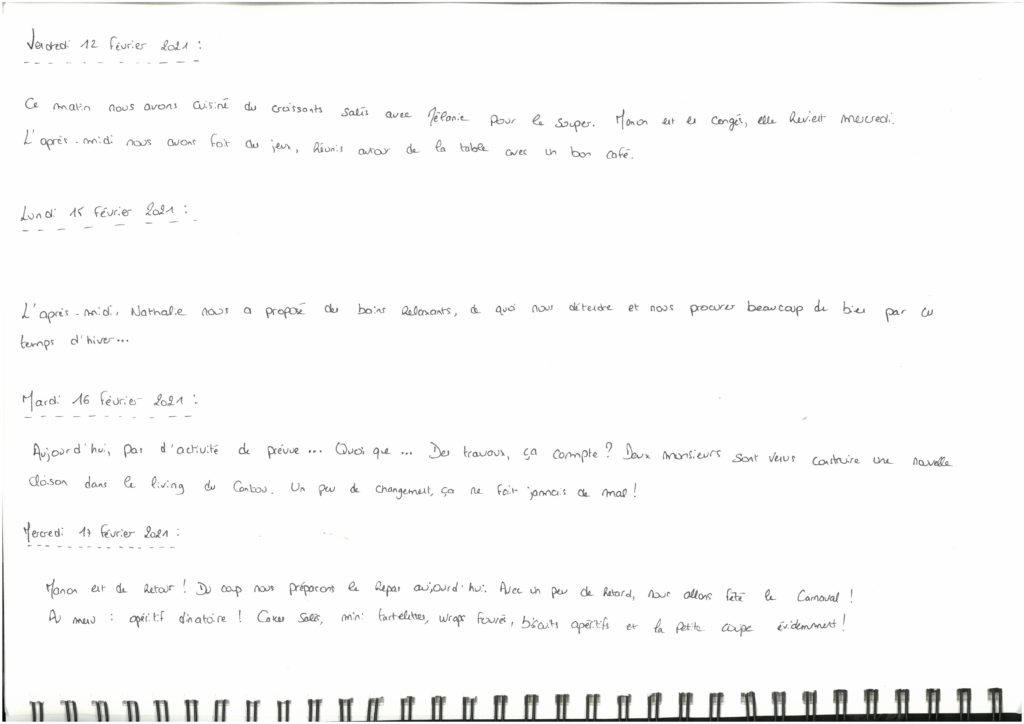 Vendredi 12 février 2021 :
Ce matin nous avons cuisiné du croissants salés avec Mélanie pour le souper. Manon est en congés, elle revient mercredi.
L'après-midi nous avons fait du jeux, réunis autour de la table avec un bon café.
Lundi 15 février 2021 :
L'après-midi, Nathalie nous a proposé des bains relaxants, de quoi nous détendre et nous procurer beaucoup de bien par ce
temps d'hiver...
Mardi 16 février 2021 :
Aujourd'hui, pas d'activité de prévue ... Quoi que ... Des travaux, ça compte ? Deux monsieurs sont venus construire une nouvelle
cloison dans le living du Caribou. Un peu de changement, ça ne fait jamais de mal !
Mercredi 17 février 2021 :
Manon est de retour ! Du coup nous préparons le repas aujourd'hui. Avec un peu de retard, nous allons fêté le Carnaval !
Au menu : apéritif dinatoire ! Cakes salés, mini tartelettes, wraps fourrés, biscuits apéritifs et la petite coupe évidemment !